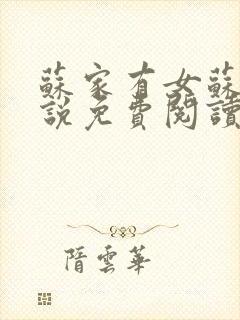 蘇家有女蘇
說免費閱讀
隋雲華